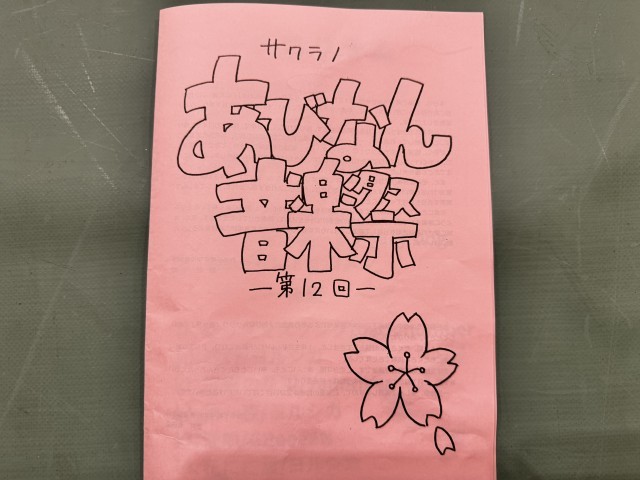 サクラノ
あびなん
音楽祭
―第12回―